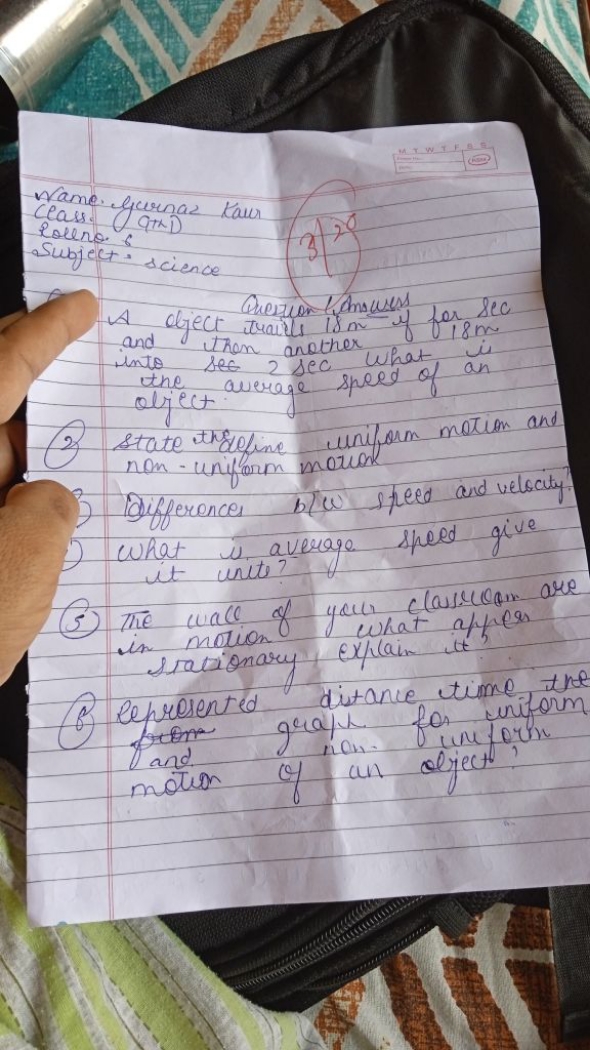 M T W T F S S
Name. Gurnaz Kaur
Class. 9th D
Roll no. 6
Subject. science
3/20
Question / Answers
A object travils 18m if for sec
and then another 18m
into sec 2 sec what is
the average speed of an
object.
(2) state the define uniform motion and
non-uniform motion
Differences b/w speed and velocity?
what is average speed give
it units?
(5) The wall of your classroom are
in motion what apper
stationary explain it?
(6) Represented distance time the
from graph for uniform
and non-uniform
motion of an object?